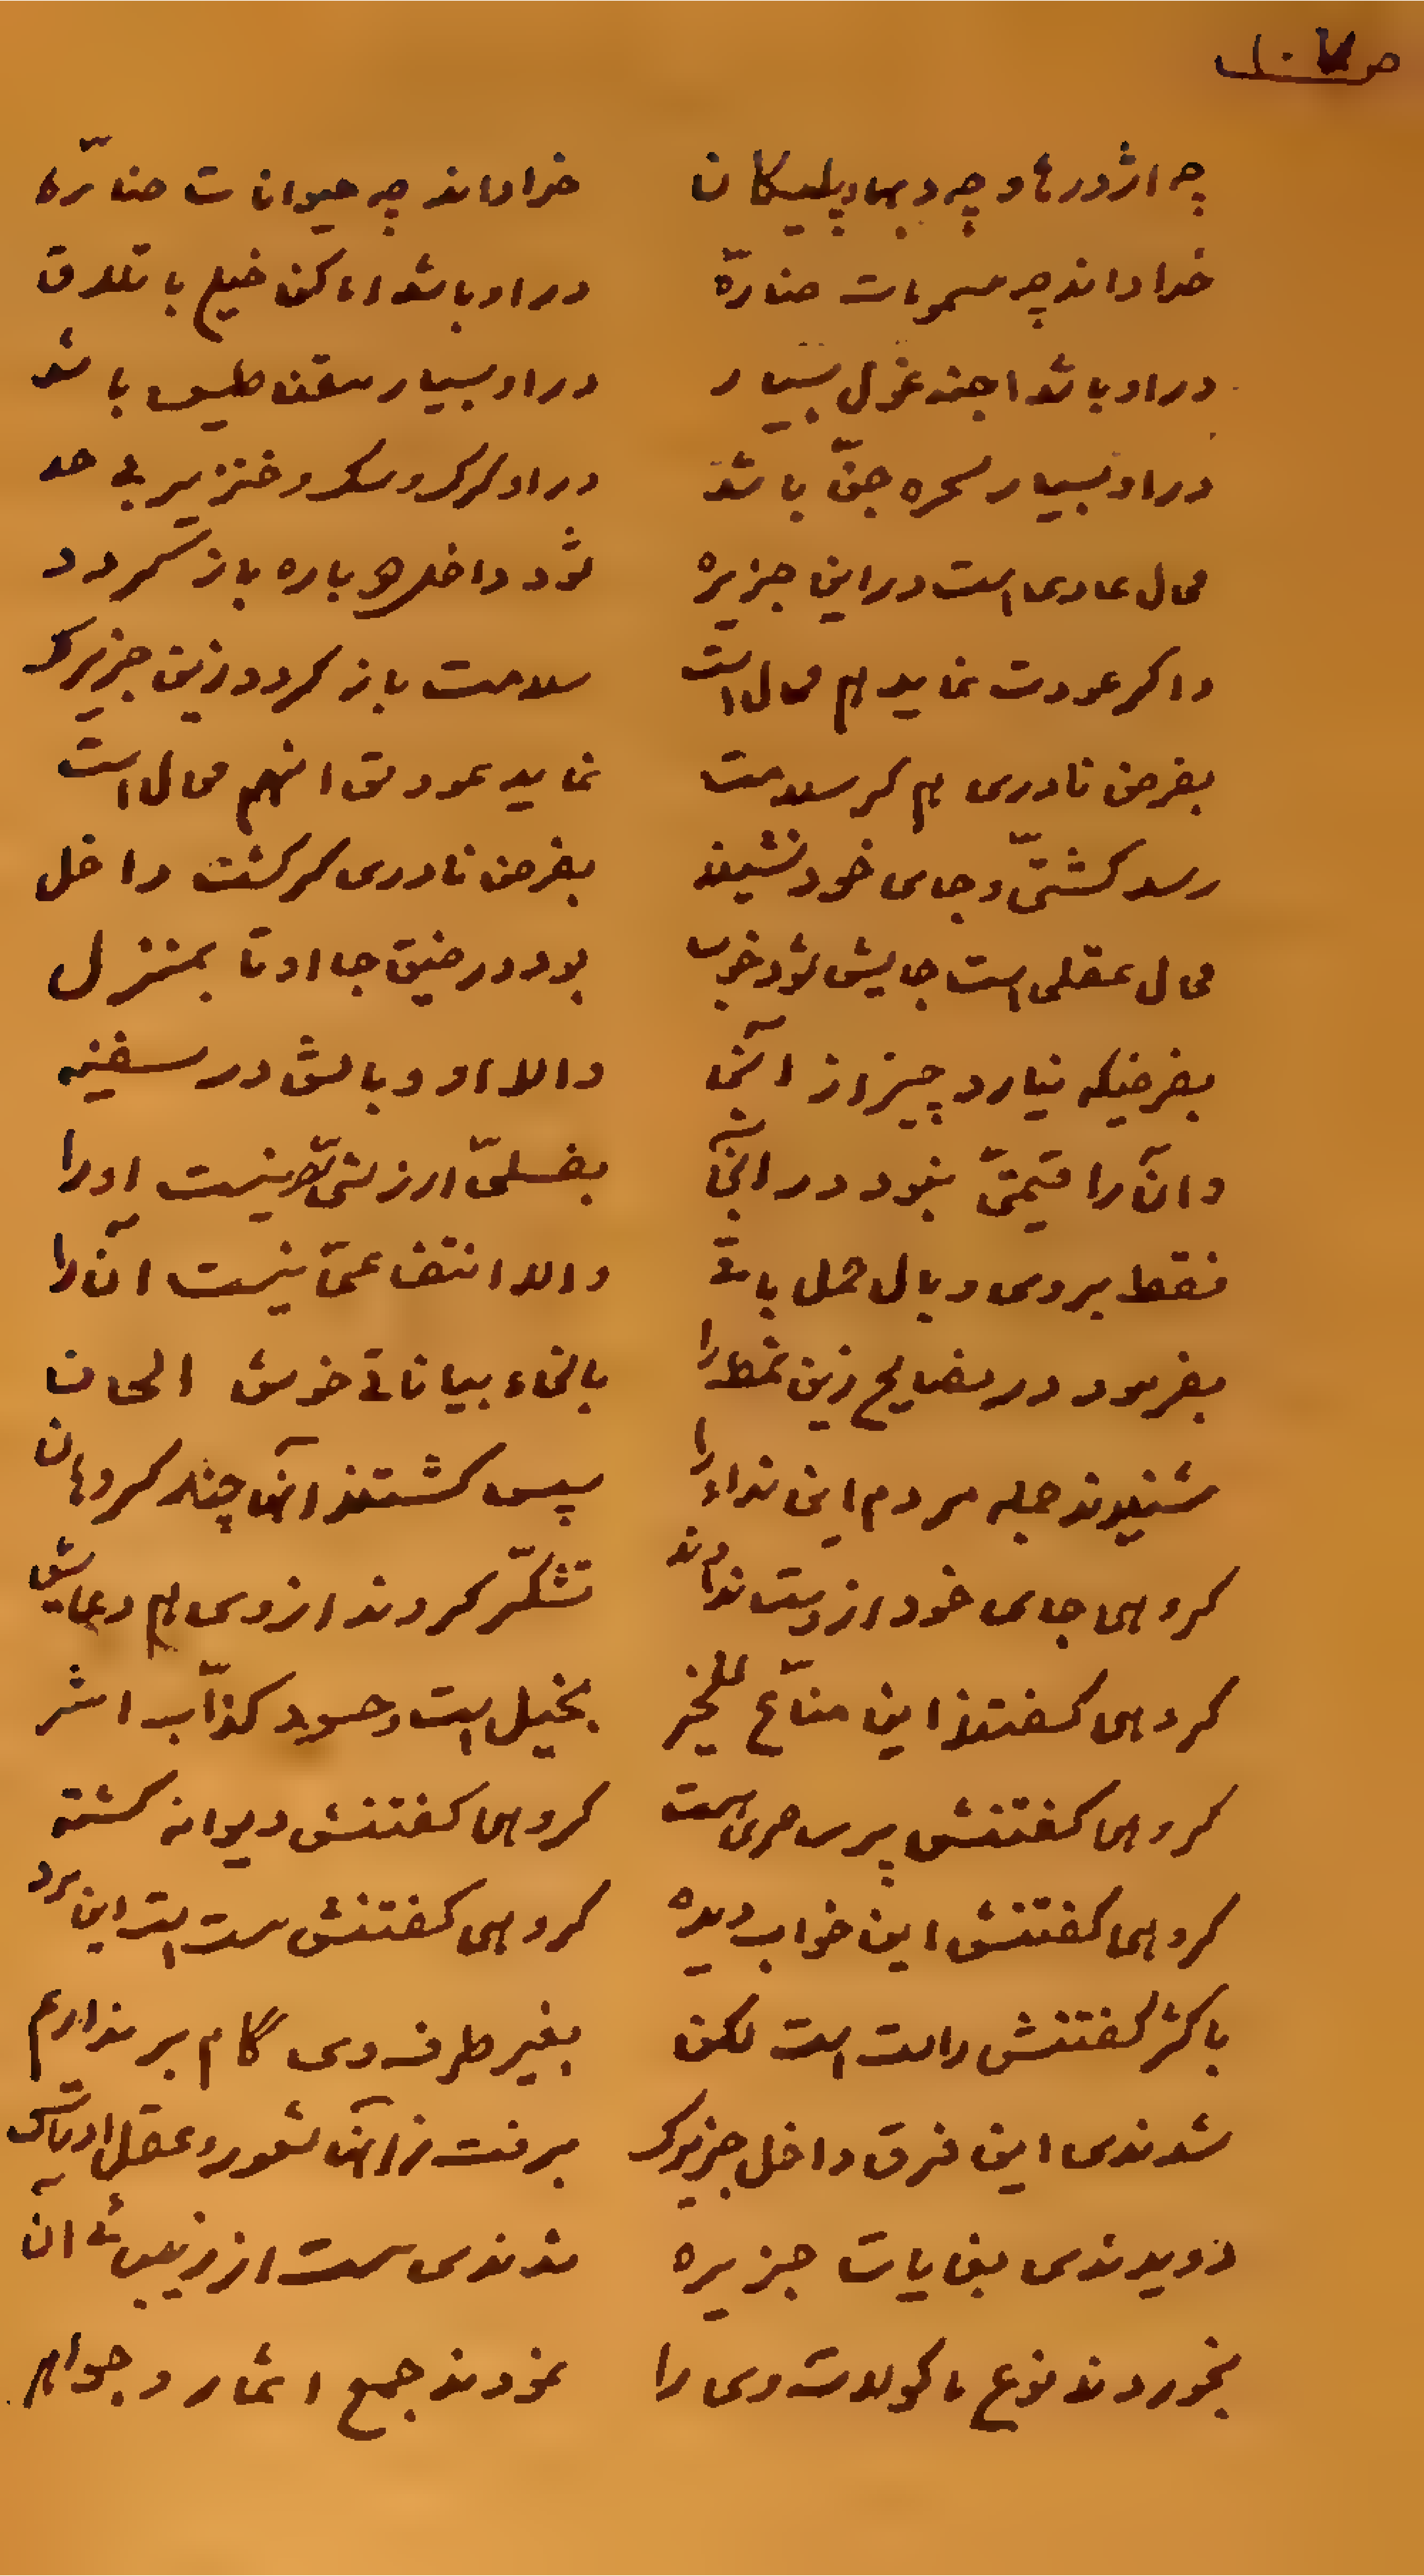 چه اژدرها و چه دبها و پلیکان خدا داند چه حیوانات ضارّه
خدا داند چه مسمومات ضارّه در او باشد اماکن خیلی باتلاق
در او باشد اجنه غول بسیار در او بسیار مغناطیس باشد
در او بسیار سحره جنّ باشد در او کرک و سک و خنزیر بی حد
محال عادی است در این جزیره شود داخل دو باره باز کردد
و اکر عودت نماید هم محال است سلامت باز کردد زین جزیرک
بفرض نادری هم کر سلامت نماید عود انهم محال است
رسد کشتیّ و جای خود نشیند بفرض نادری کر کشت داخل
محال عقلی است جایش شود خوب بود در ضیق جا او تا بمنزل
بفرضیکه نیارد چیز از آنجا و الا او وبالش در سفینه
و آن را قیمتی نبود در بفلسیّ ارزشی نیست او را
فقط بر وی وبال حمل باقی و الا انتفاعی نیست آن را
بفرمود در نصایح زین نمط را بانحاء بیاناتی خوش الحان
شنیدند جمله مردم این نداء را سپس کشتند آنها چند کروهان
کروهی جای خود از دست ندادند تشکّر کردند از وی هم دعایش
کروهی کفتند این منّاع للخیر بخیل است و حسود کذّاب اشر
کروهی کفتنش پر حرص است کروهی کفتنش دیوانه کشته
کروهی کفتنش این خواب دیده کروهی کفتنش مست است این مرد
باکثر کفتنش راست است لکن بغیر طرف وی گام بر نداریم
شدندی این فرق داخل جزیرک برفت از آنها شعور و عقل ادراک
دویدندی بغایات جزیره شدندی مست از زیبائی آن
بخوردند نوع ماکولات وی را نمودند جمع اثمار و جواهر